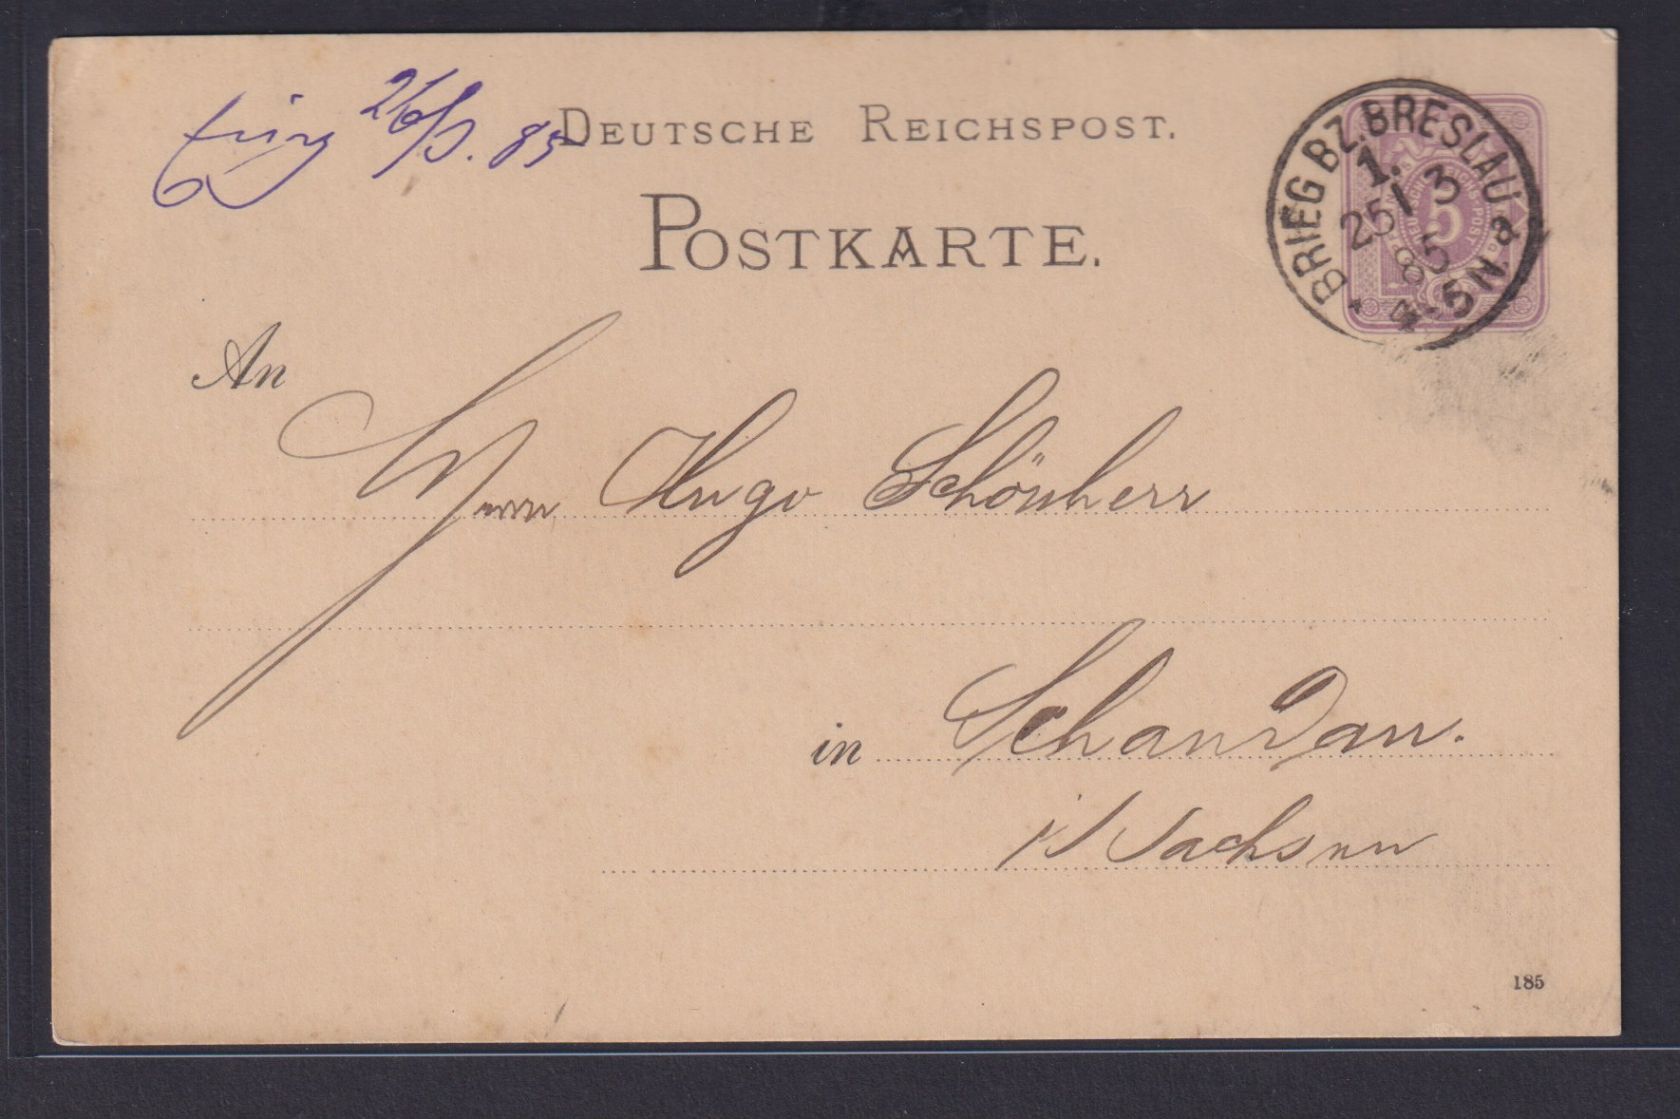 26/3. 85
DEUTSCHE REICHSPOST.
POSTKARTE.
BRIEG BZ. BRESLAU a
1.
25 3
85
4-5N.
5
An
Herrn Hugo Schönherr
in Schandau.
i/Sachsen
185